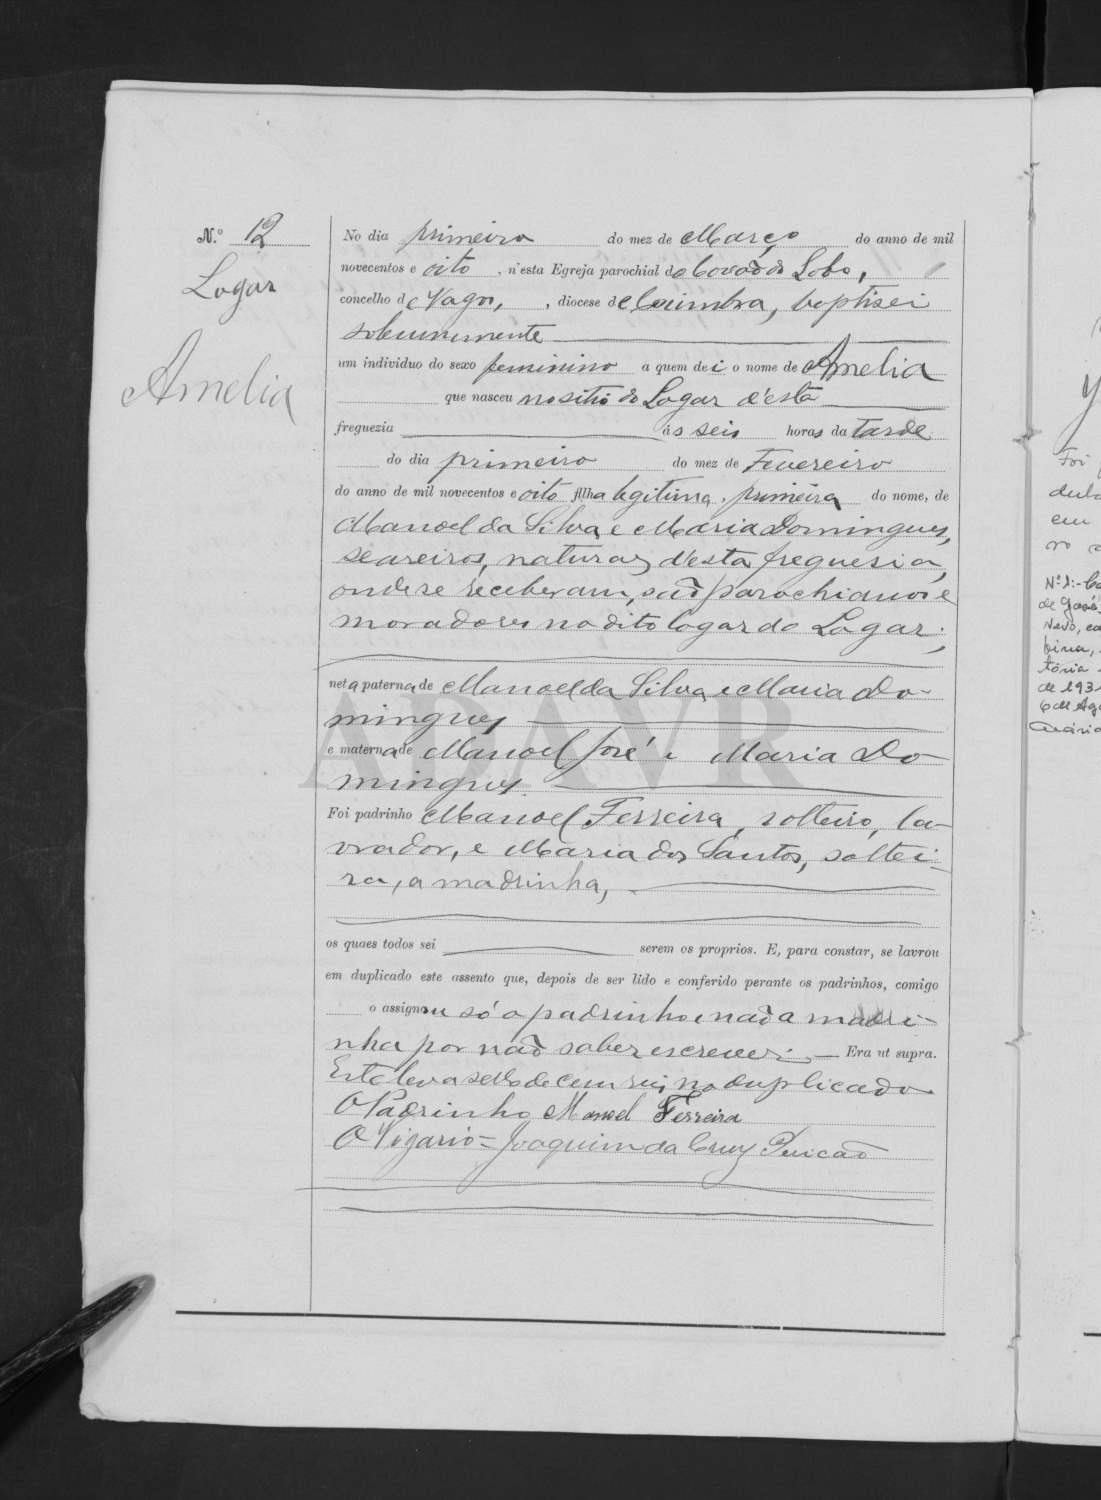 N.º 12
Logar
Amelia
No dia primeiro do mez de Março do anno de mil
novecentos e oito, n'esta Egreja parochial do Covão do Lobo,
concelho de Vagos, diocese de Coimbra, baptisei
solemnemente
um individuo do sexo feminino a quem dei o nome de Amelia
que nasceu no sitio do Logar d'esta
freguezia ás seis horas da tarde
do dia primeiro do mez de Fevereiro
do anno de mil novecentos e oito filha legitima, primeira do nome, de
Manoel da Silva e Maria Domingues,
seareiros, naturaes d'esta freguesia,
onde se receberam, são parochianos e
moradores no dito logar do Logar;
neta paterna de Manoel da Silva e Maria Do-
mingues
e materna de Manoel José e Maria Do-
mingues
Foi padrinho Manoel Ferreira, solteiro, la-
vrador, e Maria dos Santos, soltei-
ra, a madrinha,
os quaes todos sei serem os proprios. E, para constar, se lavrou
em duplicado este assento que, depois de ser lido e conferido perante os padrinhos, comigo
o assignou só o padrinho e não a madri-
nha por não saber escrever. Era ut supra.
Este leva sello de cem reis no duplicado
O Padrinho Manoel Ferreira
O Vigario = Joaquim da Cruz
ADAVR
Foi
em
Nº 1:-
de José
Neto,
bina,
tória
de 1931
6 de Ag